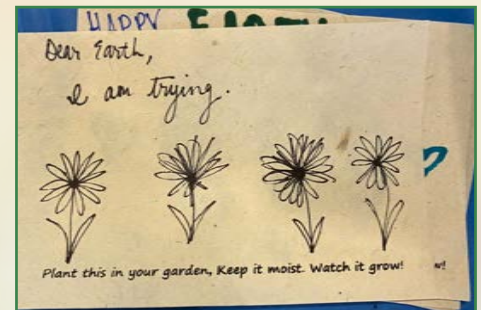 HAPPY EARTH
Dear Earth,
I am trying.
?
Plant this in your garden, Keep it moist. Watch it grow!
w!